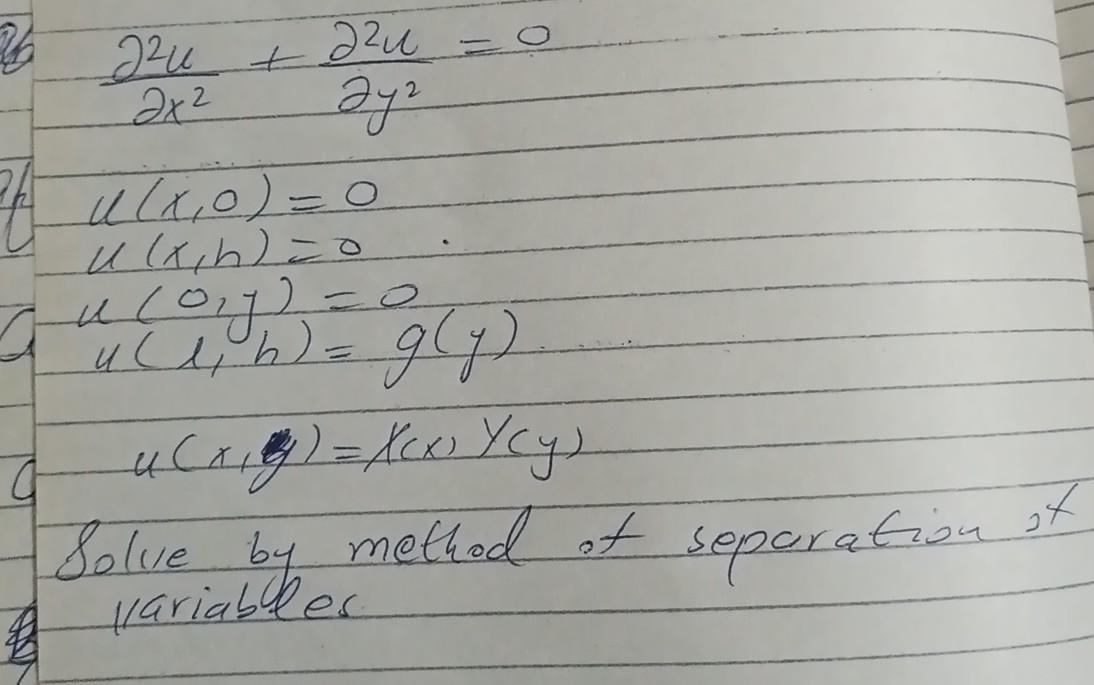 ∂²u/∂x² + ∂²u/∂y² = 0
u(x,0) = 0
u(x,h) = 0
u(0,y) = 0
u(l,h) = g(y)
u(x,y) = X(x) Y(y)
Solve by method of separation of
variables